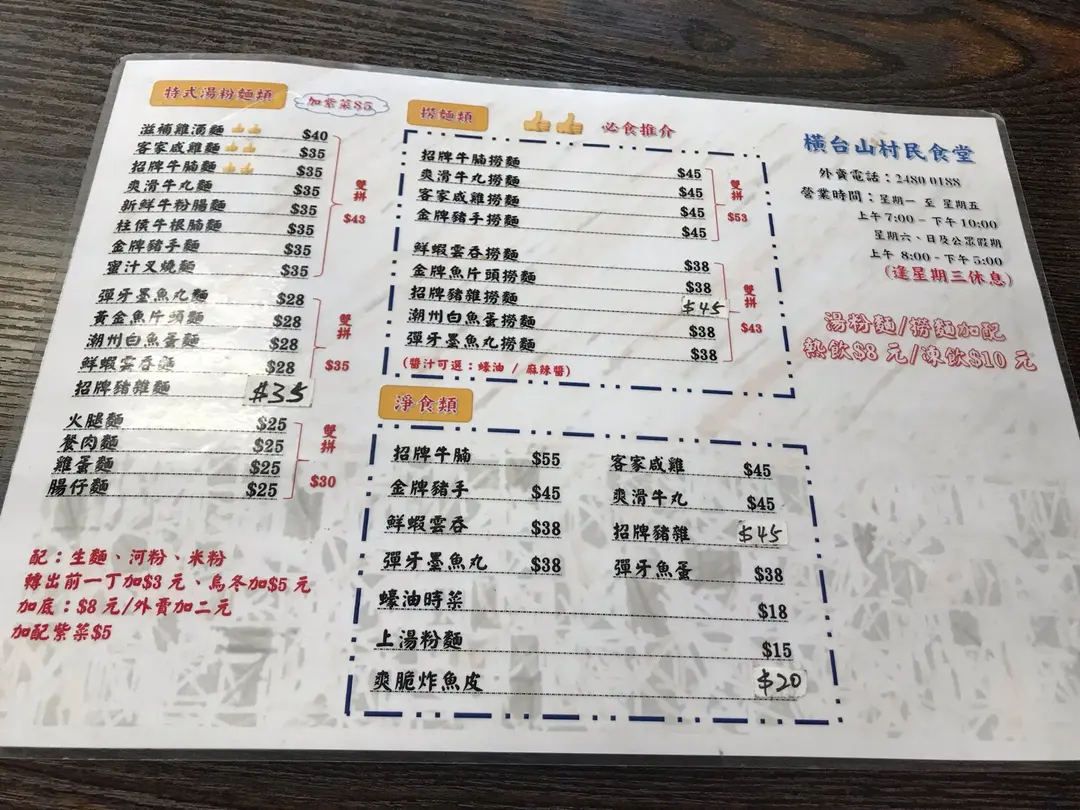 特式湯粉麵類
加紫菜$5
滋補雞酒麵 $40
客家咸雞麵 $35
招牌牛腩麵 $35
爽滑牛丸麵 $35
新鮮牛粉腸麵 $35
柱侯牛根腩麵 $35
金牌豬手麵 $35
蜜汁叉燒麵 $35
雙拼
$43
彈牙墨魚丸麵 $28
黃金魚片頭麵 $28
潮州白魚蛋麵 $28
鮮蝦雲吞麵 $28
招牌豬雜麵 $35
雙拼
$35
火腿麵 $25
餐肉麵 $25
雞蛋麵 $25
腸仔麵 $25
雙拼
$30
配：生麵、河粉、米粉
轉出前一丁加$3 元、烏冬加$5 元
加底：$8 元/外賣加二元
加配紫菜$5
撈麵類
必食推介
招牌牛腩撈麵 $45
爽滑牛丸撈麵 $45
客家咸雞撈麵 $45
金牌豬手撈麵 $45
雙拼
$53
鮮蝦雲吞撈麵 $38
金牌魚片頭撈麵 $38
招牌豬雜撈麵 $45
潮州白魚蛋撈麵 $38
彈牙墨魚丸撈麵 $38
雙拼
$43
(醬汁可選：蠔油 / 麻辣醬)
淨食類
招牌牛腩 $55
金牌豬手 $45
鮮蝦雲吞 $38
彈牙墨魚丸 $38
客家咸雞 $45
爽滑牛丸 $45
招牌豬雜 $45
彈牙魚蛋 $38
蠔油時菜 $18
上湯粉麵 $15
爽脆炸魚皮 $20
橫台山村民食堂
外賣電話：2480 0188
營業時間：星期一 至 星期五
上午 7:00 - 下午 10:00
星期六、日及公眾假期
上午 8:00 - 下午 5:00
(逢星期三休息)
湯粉麵/撈麵加配
熱飲$8 元/凍飲$10 元